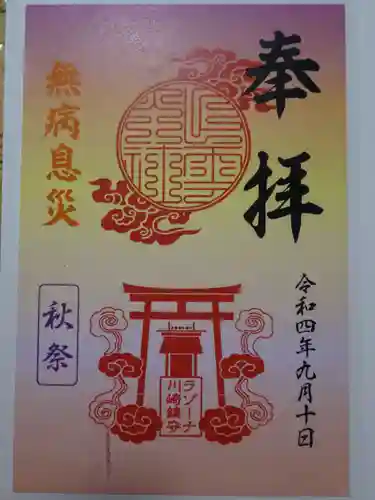 奉拝
令和四年九月十日
無病息災
秋祭
ラゾーナ
川崎鎮守